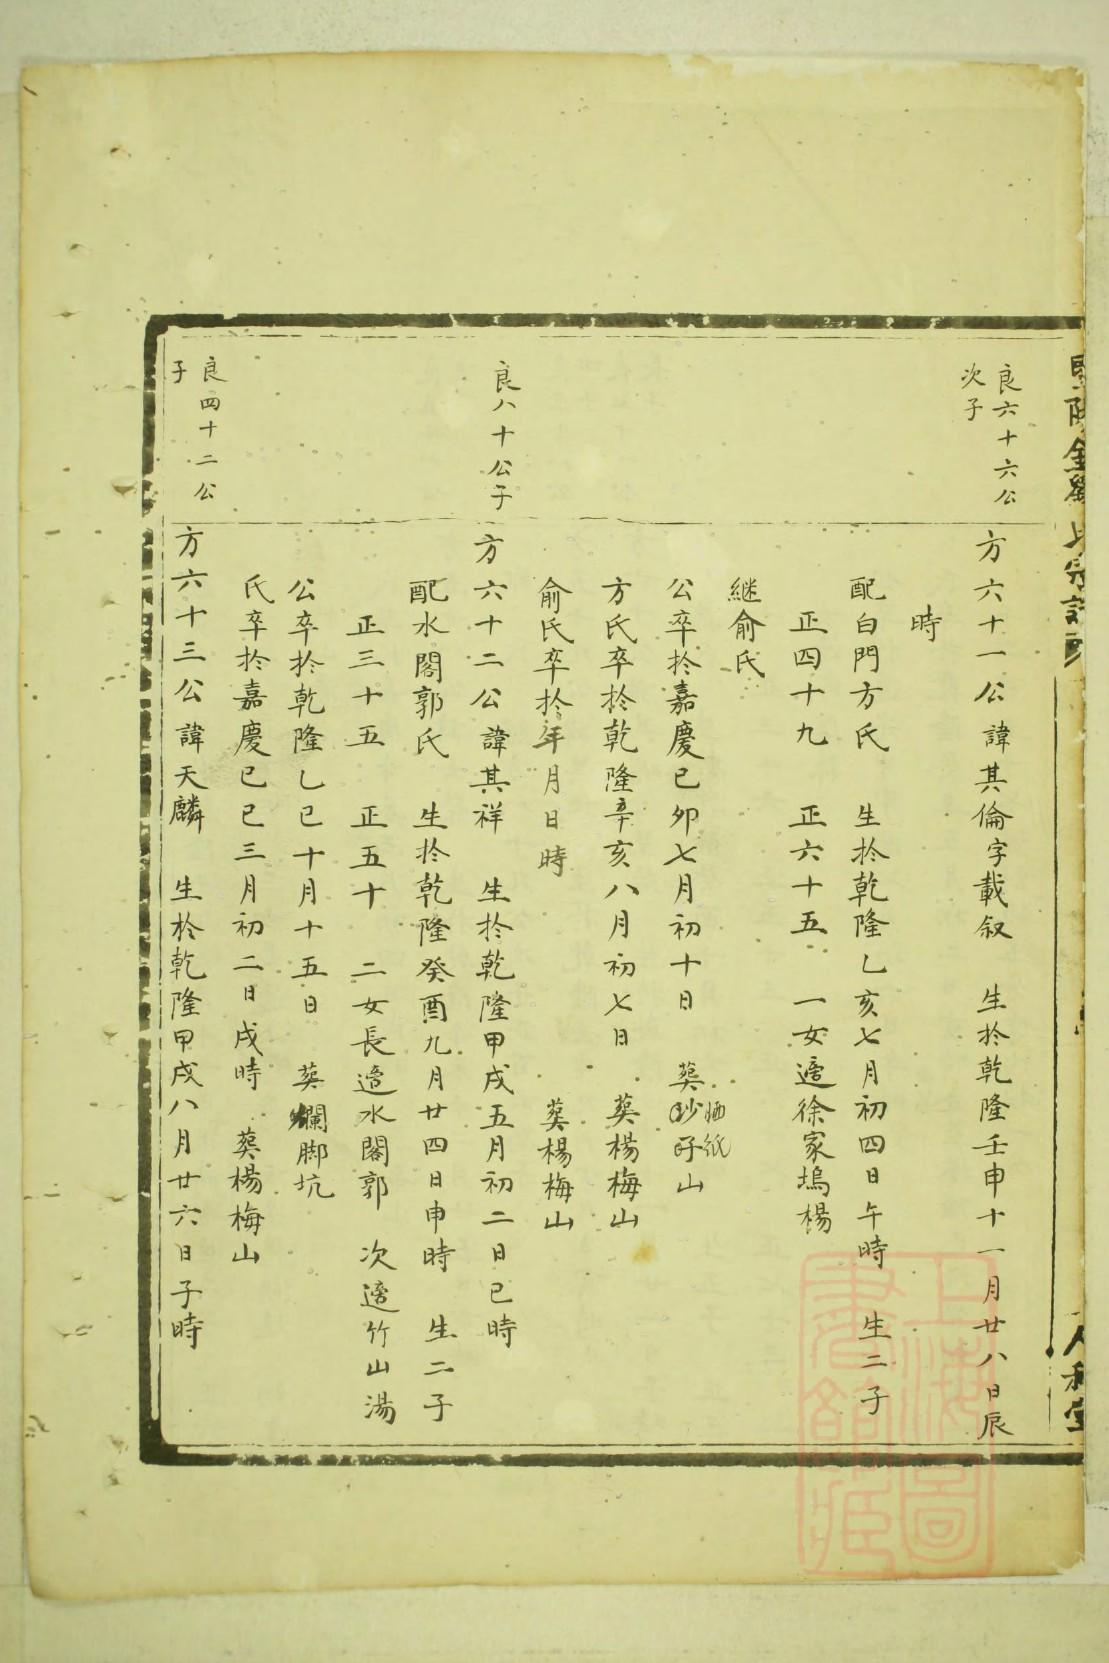 良六十六公
次子
方六十一公諱其倫字載叙　生於乾隆壬申十一月廿八日辰
時
配白門方氏　生於乾隆乙亥七月初四日午時　生二子
正四十九　正六十五　一女適徐家塢楊
継俞氏
公卒於嘉慶已卯七月初十日　葬山
方氏卒於乾隆辛亥八月初七日　葵楊梅山
俞氏卒於年月日時　葵楊梅山
良八十公子
方六十二公諱其祥　生於乾隆甲戌五月初二日已時
配水閣郭氏　生於乾隆癸酉九月廿四日申時　生二子
正三十五　正五十　二女長適水閣郭　次適竹山湯
公卒於乾隆乙已十月十五日　葵爛脚坑
氏卒於嘉慶已已三月初二日戌時　葵楊梅山
良四十二公
子
方六十三公諱天麟　生於乾隆甲戌八月廿六日子時
上海圖
書館藏